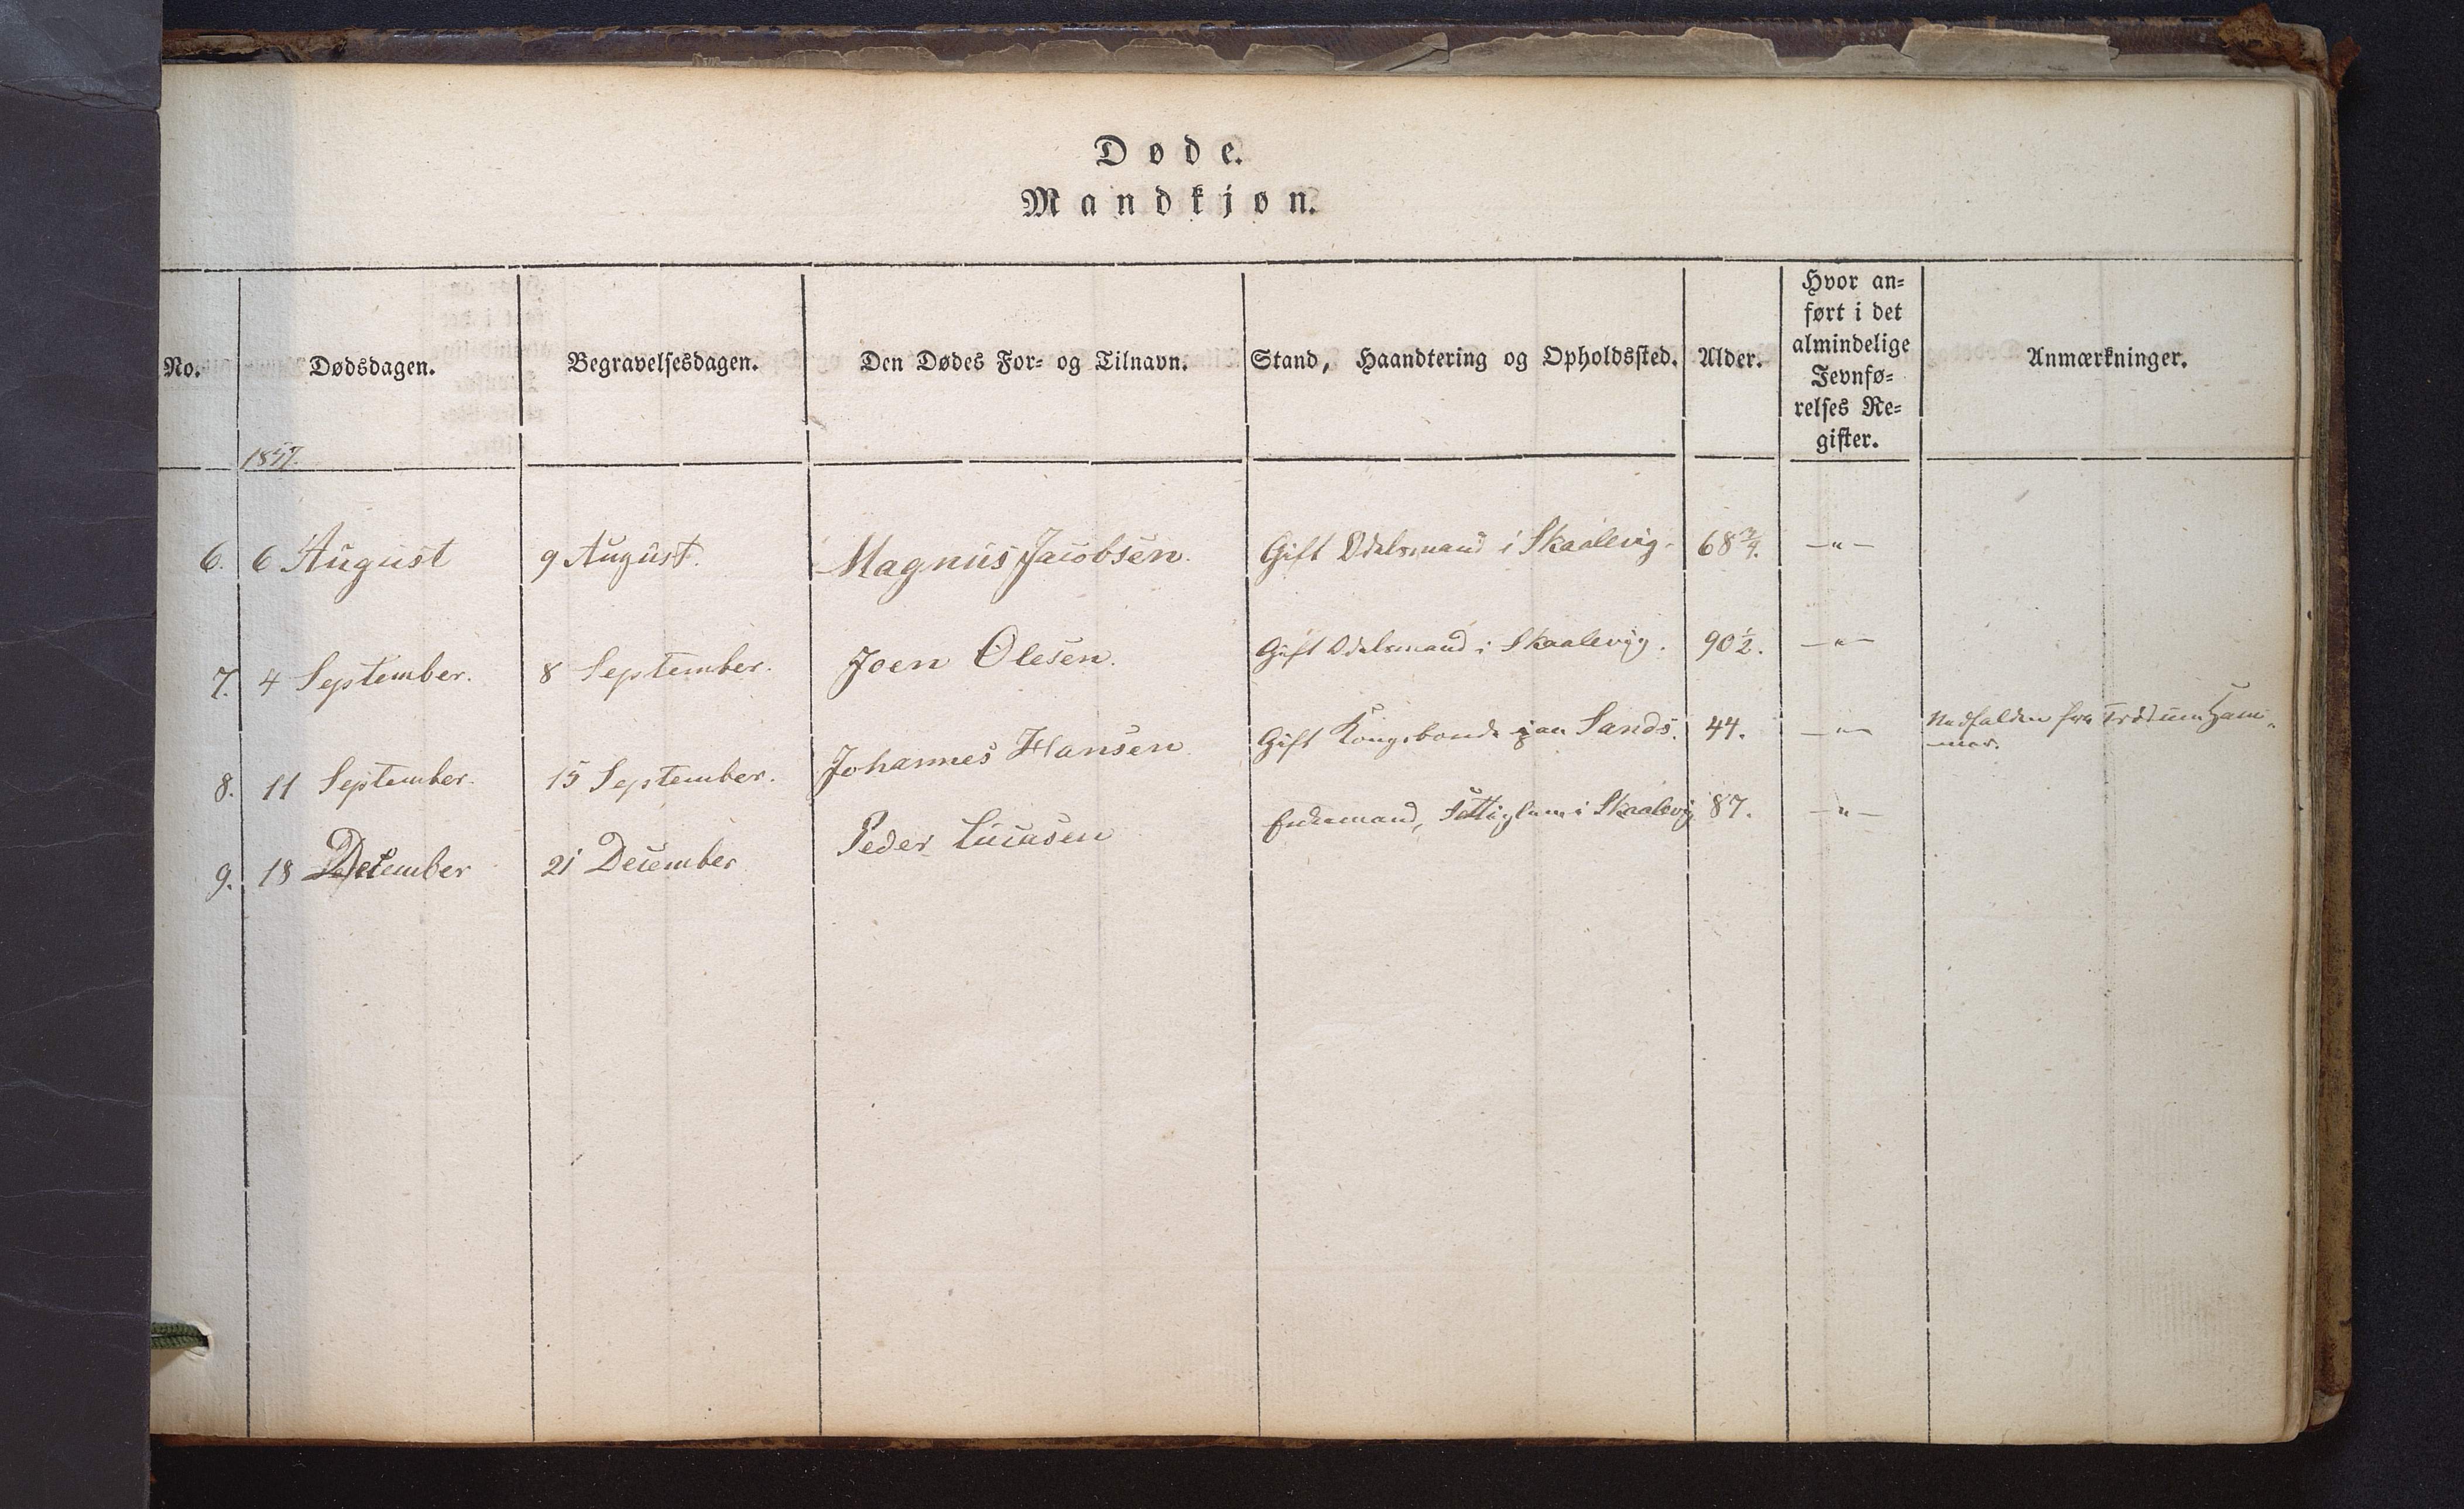 Døde.
Mandkjøn.
No. Dødsdagen. Begravelsesdagen. Den Dødes For- og Tilnavn. Stand, Haandtering og Opholdssted. Alder. Hvor an=
ført i det
almindelige
Jevnfø=
relses Re=
gister. Anmærkninger.
1857.
6. 6 August 9 August. Magnus Jacobsen. Gift Odelsmand i Skaalevig. 68 3/4. —"—
7. 4 September. 8 September. Joen Olesen. Gift Odelsmand i Skaalevig. 90 1/2. —"—
8. 11 September. 15 September. Johannes Hansen Gift Kongsbonde paa Sands. 44. —"— Nedfalden fra Ham=
mer.
9. 18 December 21 December Peder Lucasen Enkemand, Fattiglem i Skaalevig 87. —"—